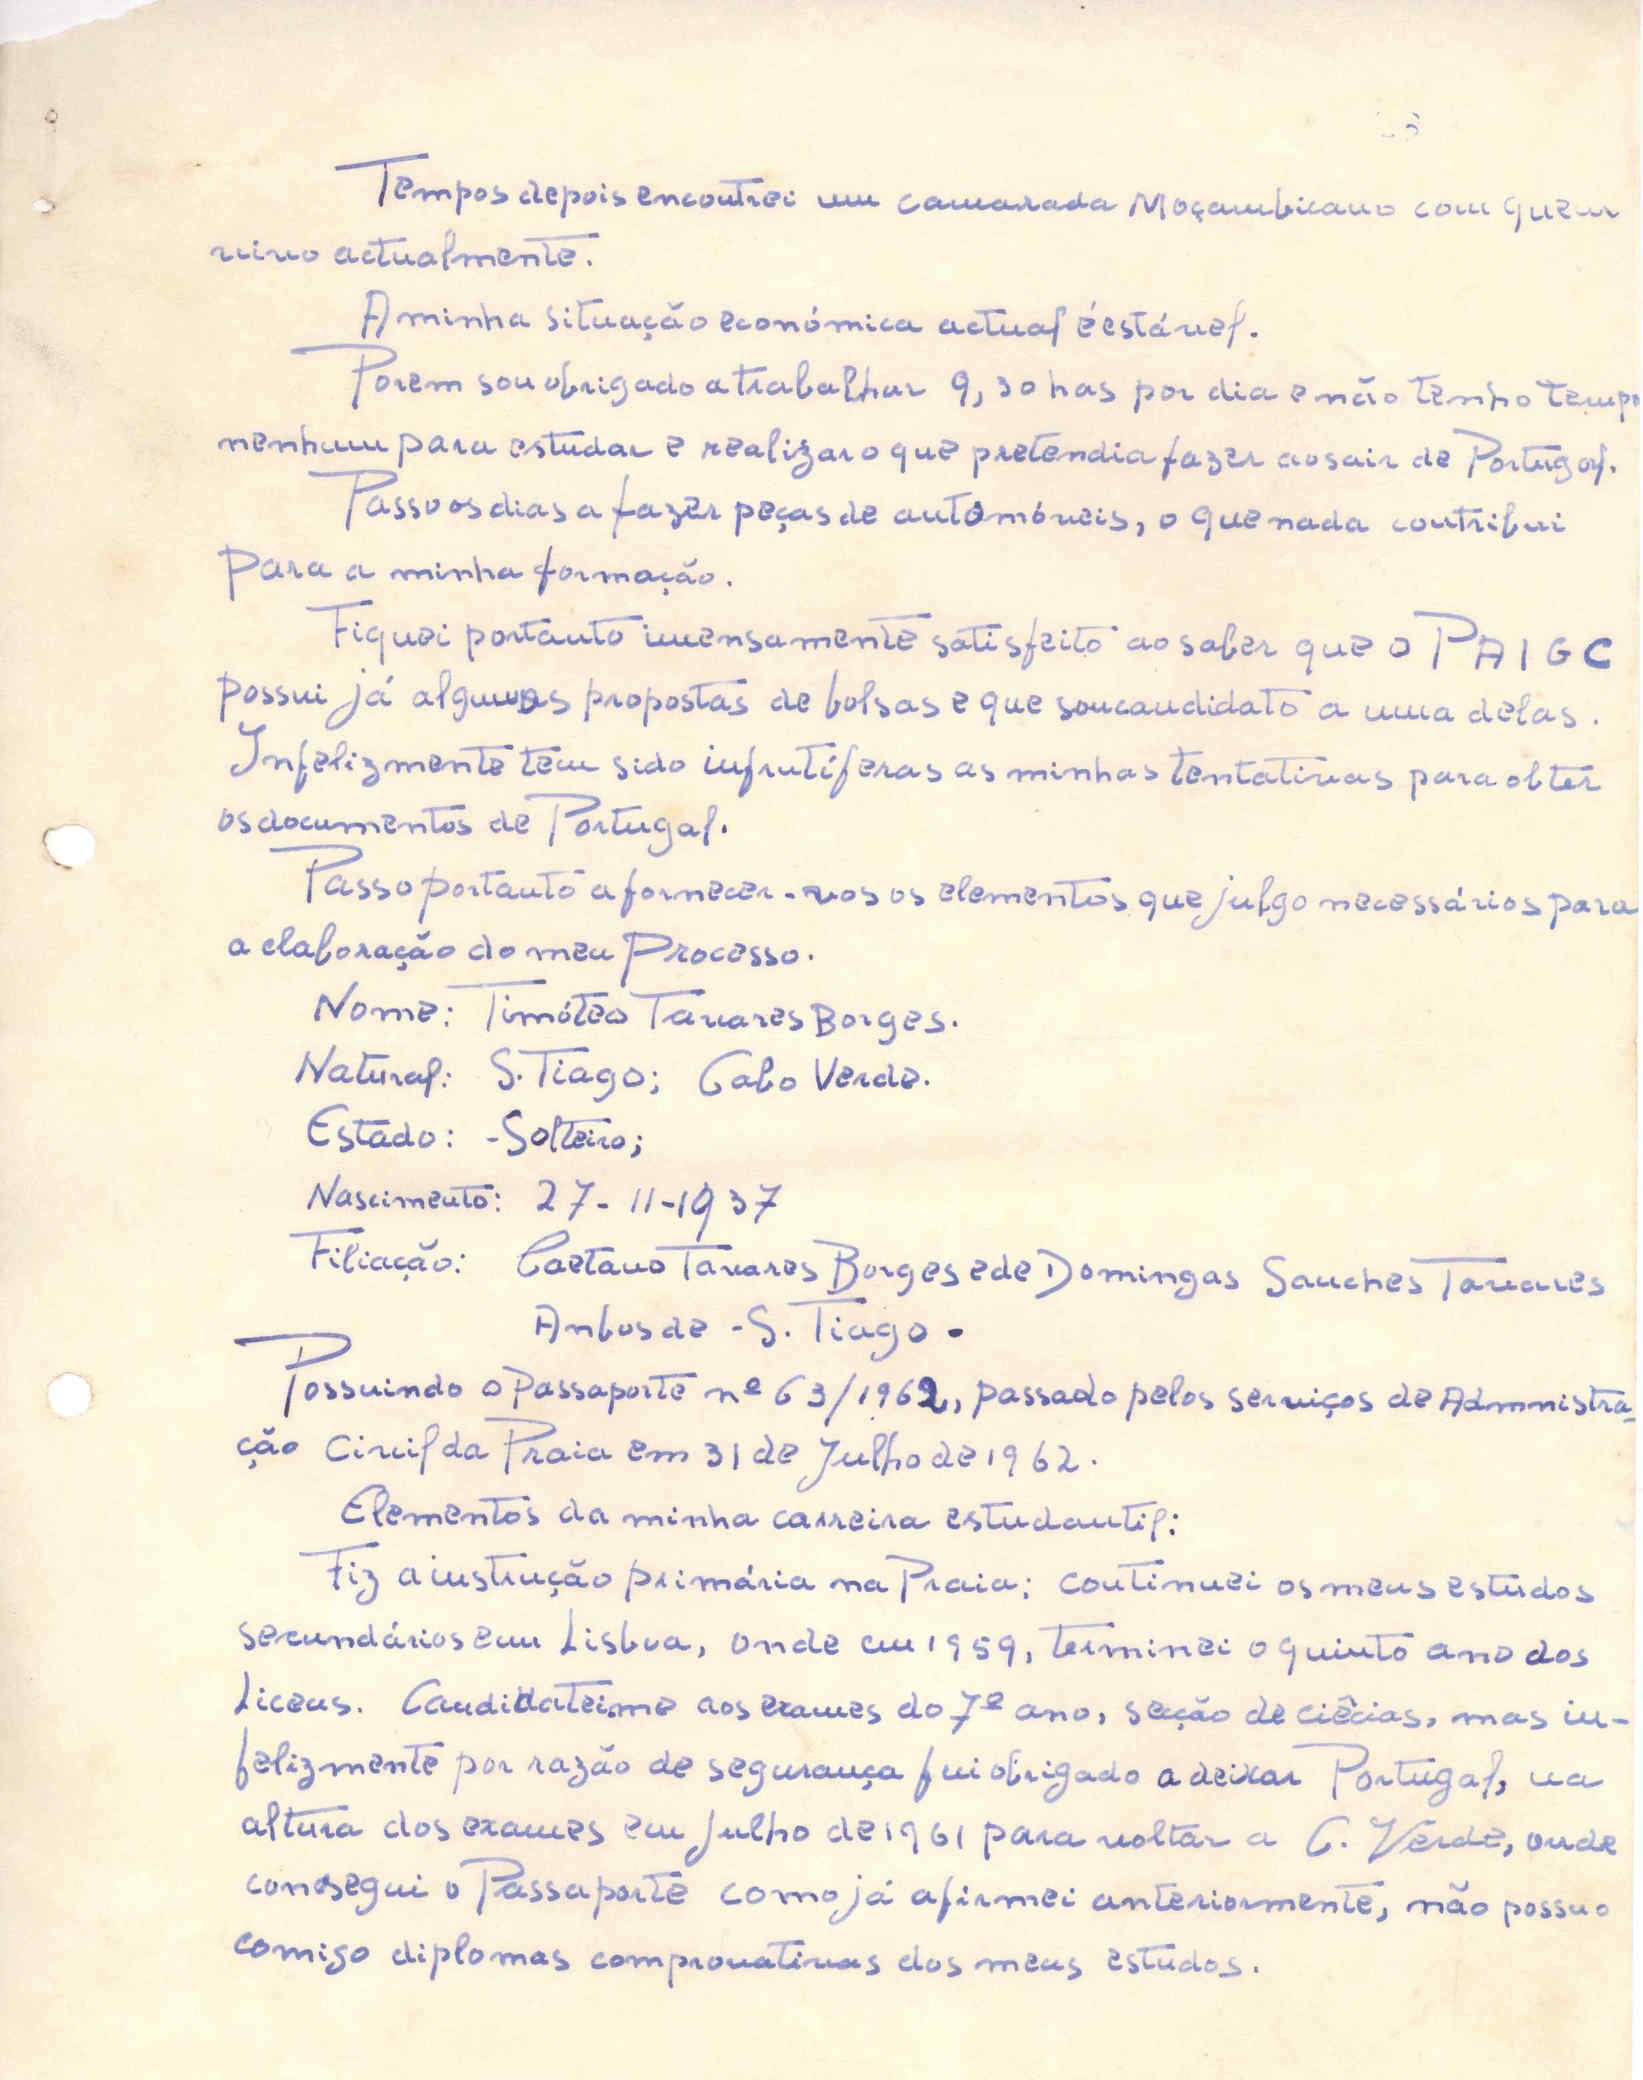 Tempos depois encontrei um camarada Moçambicano com quem
vivo actualmente.
A minha situação económica actual é estável.
Porem sou obrigado a trabalhar 9,30 has por dia e não tenho tempo
nenhum para estudar e realizar o que pretendia fazer ao sair de Portugal.
Passo os dias a fazer peças de automóveis, o que nada contribui
para a minha formação.
Fiquei portanto imensamente satisfeito ao saber que o PAIGC
possui já algumas propostas de bolsas e que sou candidato a uma delas.
Infelizmente tem sido infrutíferas as minhas tentativas para obter
os documentos de Portugal.
Passo portanto a fornecer-vos os elementos que julgo necessários para
a elaboração do meu processo.
Nome: Timóteo Tavares Borges.
Natural: S. Tiago; Cabo Verde.
Estado: -Solteiro;
Nascimento: 27-11-1937
Filiação: Caetano Tavares Borges e de Domingas Sanches Tavares
Anbos de -S. Tiago.
Possuindo o Passaporte nº 63/1962, passado pelos serviços de Admnistra-
ção Civil da Praia em 31 de Julho de 1962.
Elementos da minha carreira estudantil:
Fiz a instrução primária na Praia; continuei os meus estudos
secundários em Lisboa, onde em 1959, terminei o quinto ano dos
Liceus. Candidatei-me aos exames do 7º ano, secção de ciêcias, mas in-
felizmente por razão de segurança fui obrigado a deixar Portugal, na
altura dos exames em Julho de 1961 para voltar a C. Verde, onde
consegui o Passaporte como já afirmei anteriormente, não possuo
comigo diplomas comprovativas dos meus estudos.